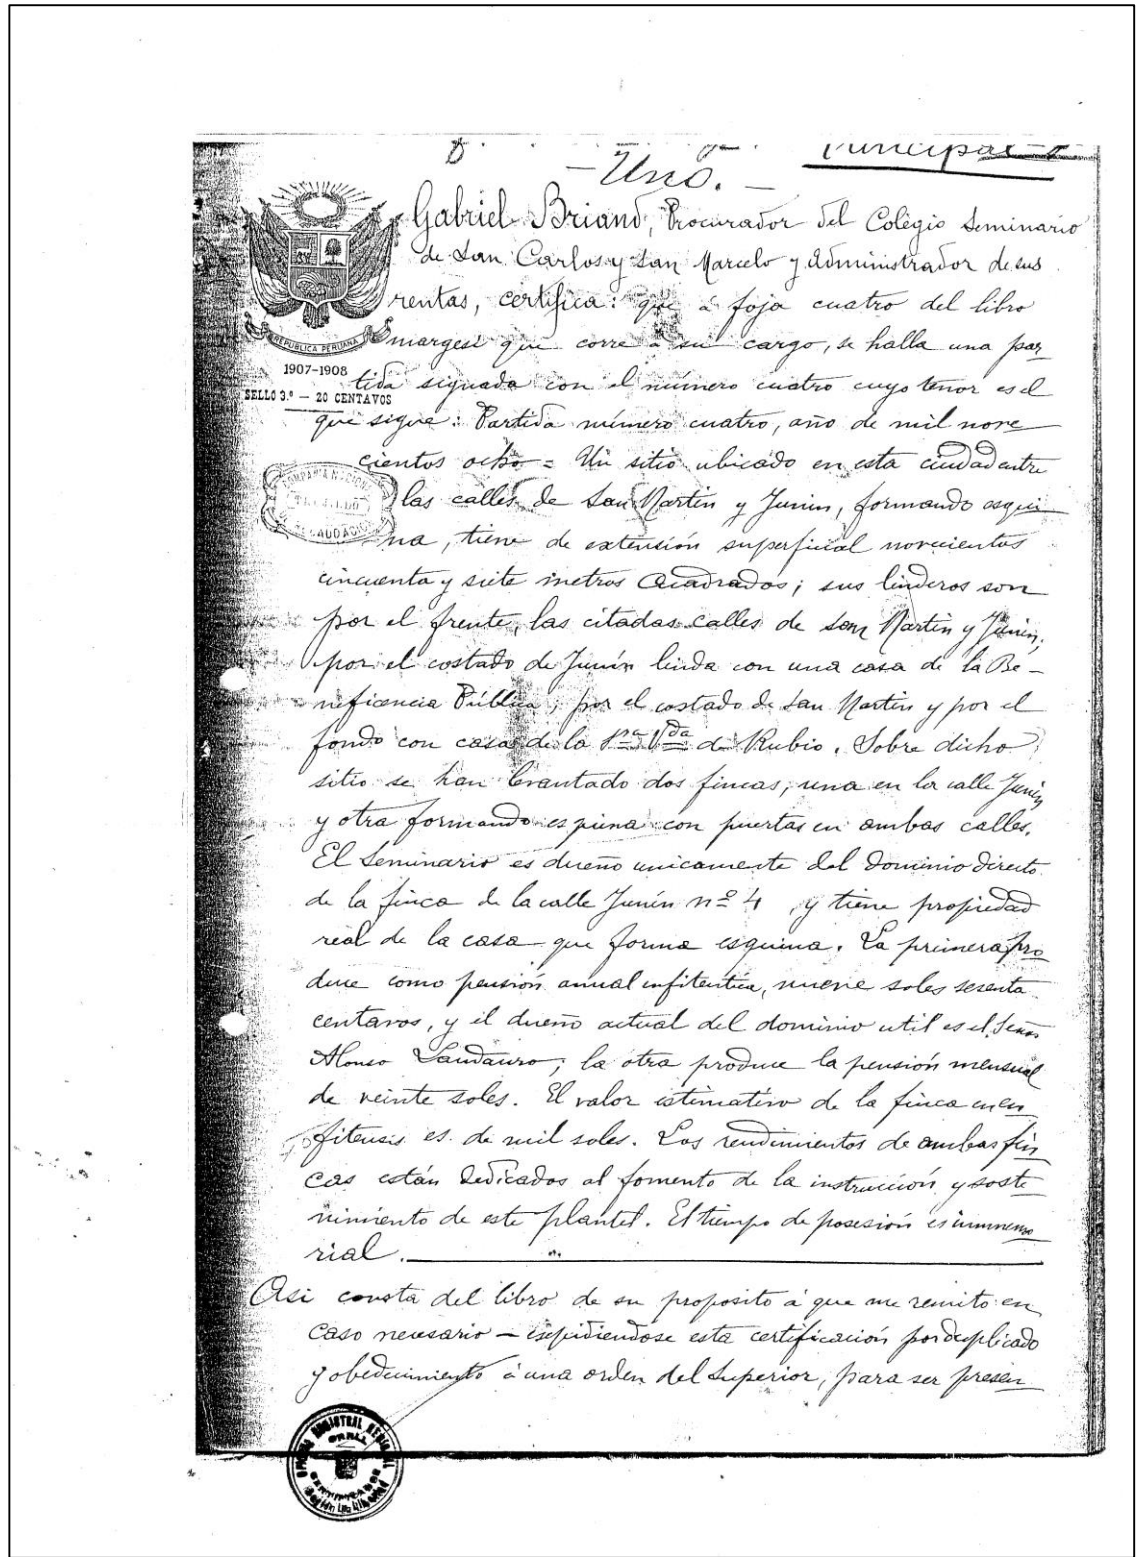 Principal
- Uno. -
Gabriel Briand, Procurador del Colegio Seminario
de San Carlos y San Marcelo y Administrador de sus
rentas, certifica: que á foja cuatro del libro
margesí que corre á su cargo, se halla una par
REPUBLICA PERUANA
1907-1908
SELLO 3.º — 20 CENTAVOS
tida signada con el número cuatro cuyo tenor es el
que sigue: Partida número cuatro, año de mil nove
cientos ocho = Un sitio ubicado en esta ciudad entre
las calles de San Martin y Junin, formando esqui
na, tiene de extensión superficial novecientos
cincuenta y siete metros cuadrados; sus linderos son
por el frente, las citadas calles de San Martin y Junin,
por el costado de Junín linda con una casa de la Be-
neficencia Pública; por el costado de San Martin y por el
fondo con casa de la Sra Vda de Rubio. Sobre dicho
sitio se han levantado dos fincas, una en la calle Junin
y otra formando esquina con puertas en ambas calles.
El Seminario es dueño unicamente del dominio directo
de la finca de la calle Junín nº 4, y tiene propiedad
real de la casa que forma esquina. La primera pro
duce como pensión anual enfitéutica, nueve soles sesenta
centavos, y el dueño actual del dominio util es el Señor
Alonso Landauro; la otra produce la pensión mensual
de veinte soles. El valor estimativo de la finca en en
fiteusis es de mil soles. Los rendimientos de ambas fin
cas están dedicados al fomento de la instrucción y soste
nimiento de este plantel. El tiempo de posesión es inmemo
rial.
Asi consta del libro de su proposito á que me remito en
caso necesario - expidiendose esta certificación por duplicado
y obedecimiento á una orden del Superior, para ser presen
OFICINA REGISTRAL REGIONAL